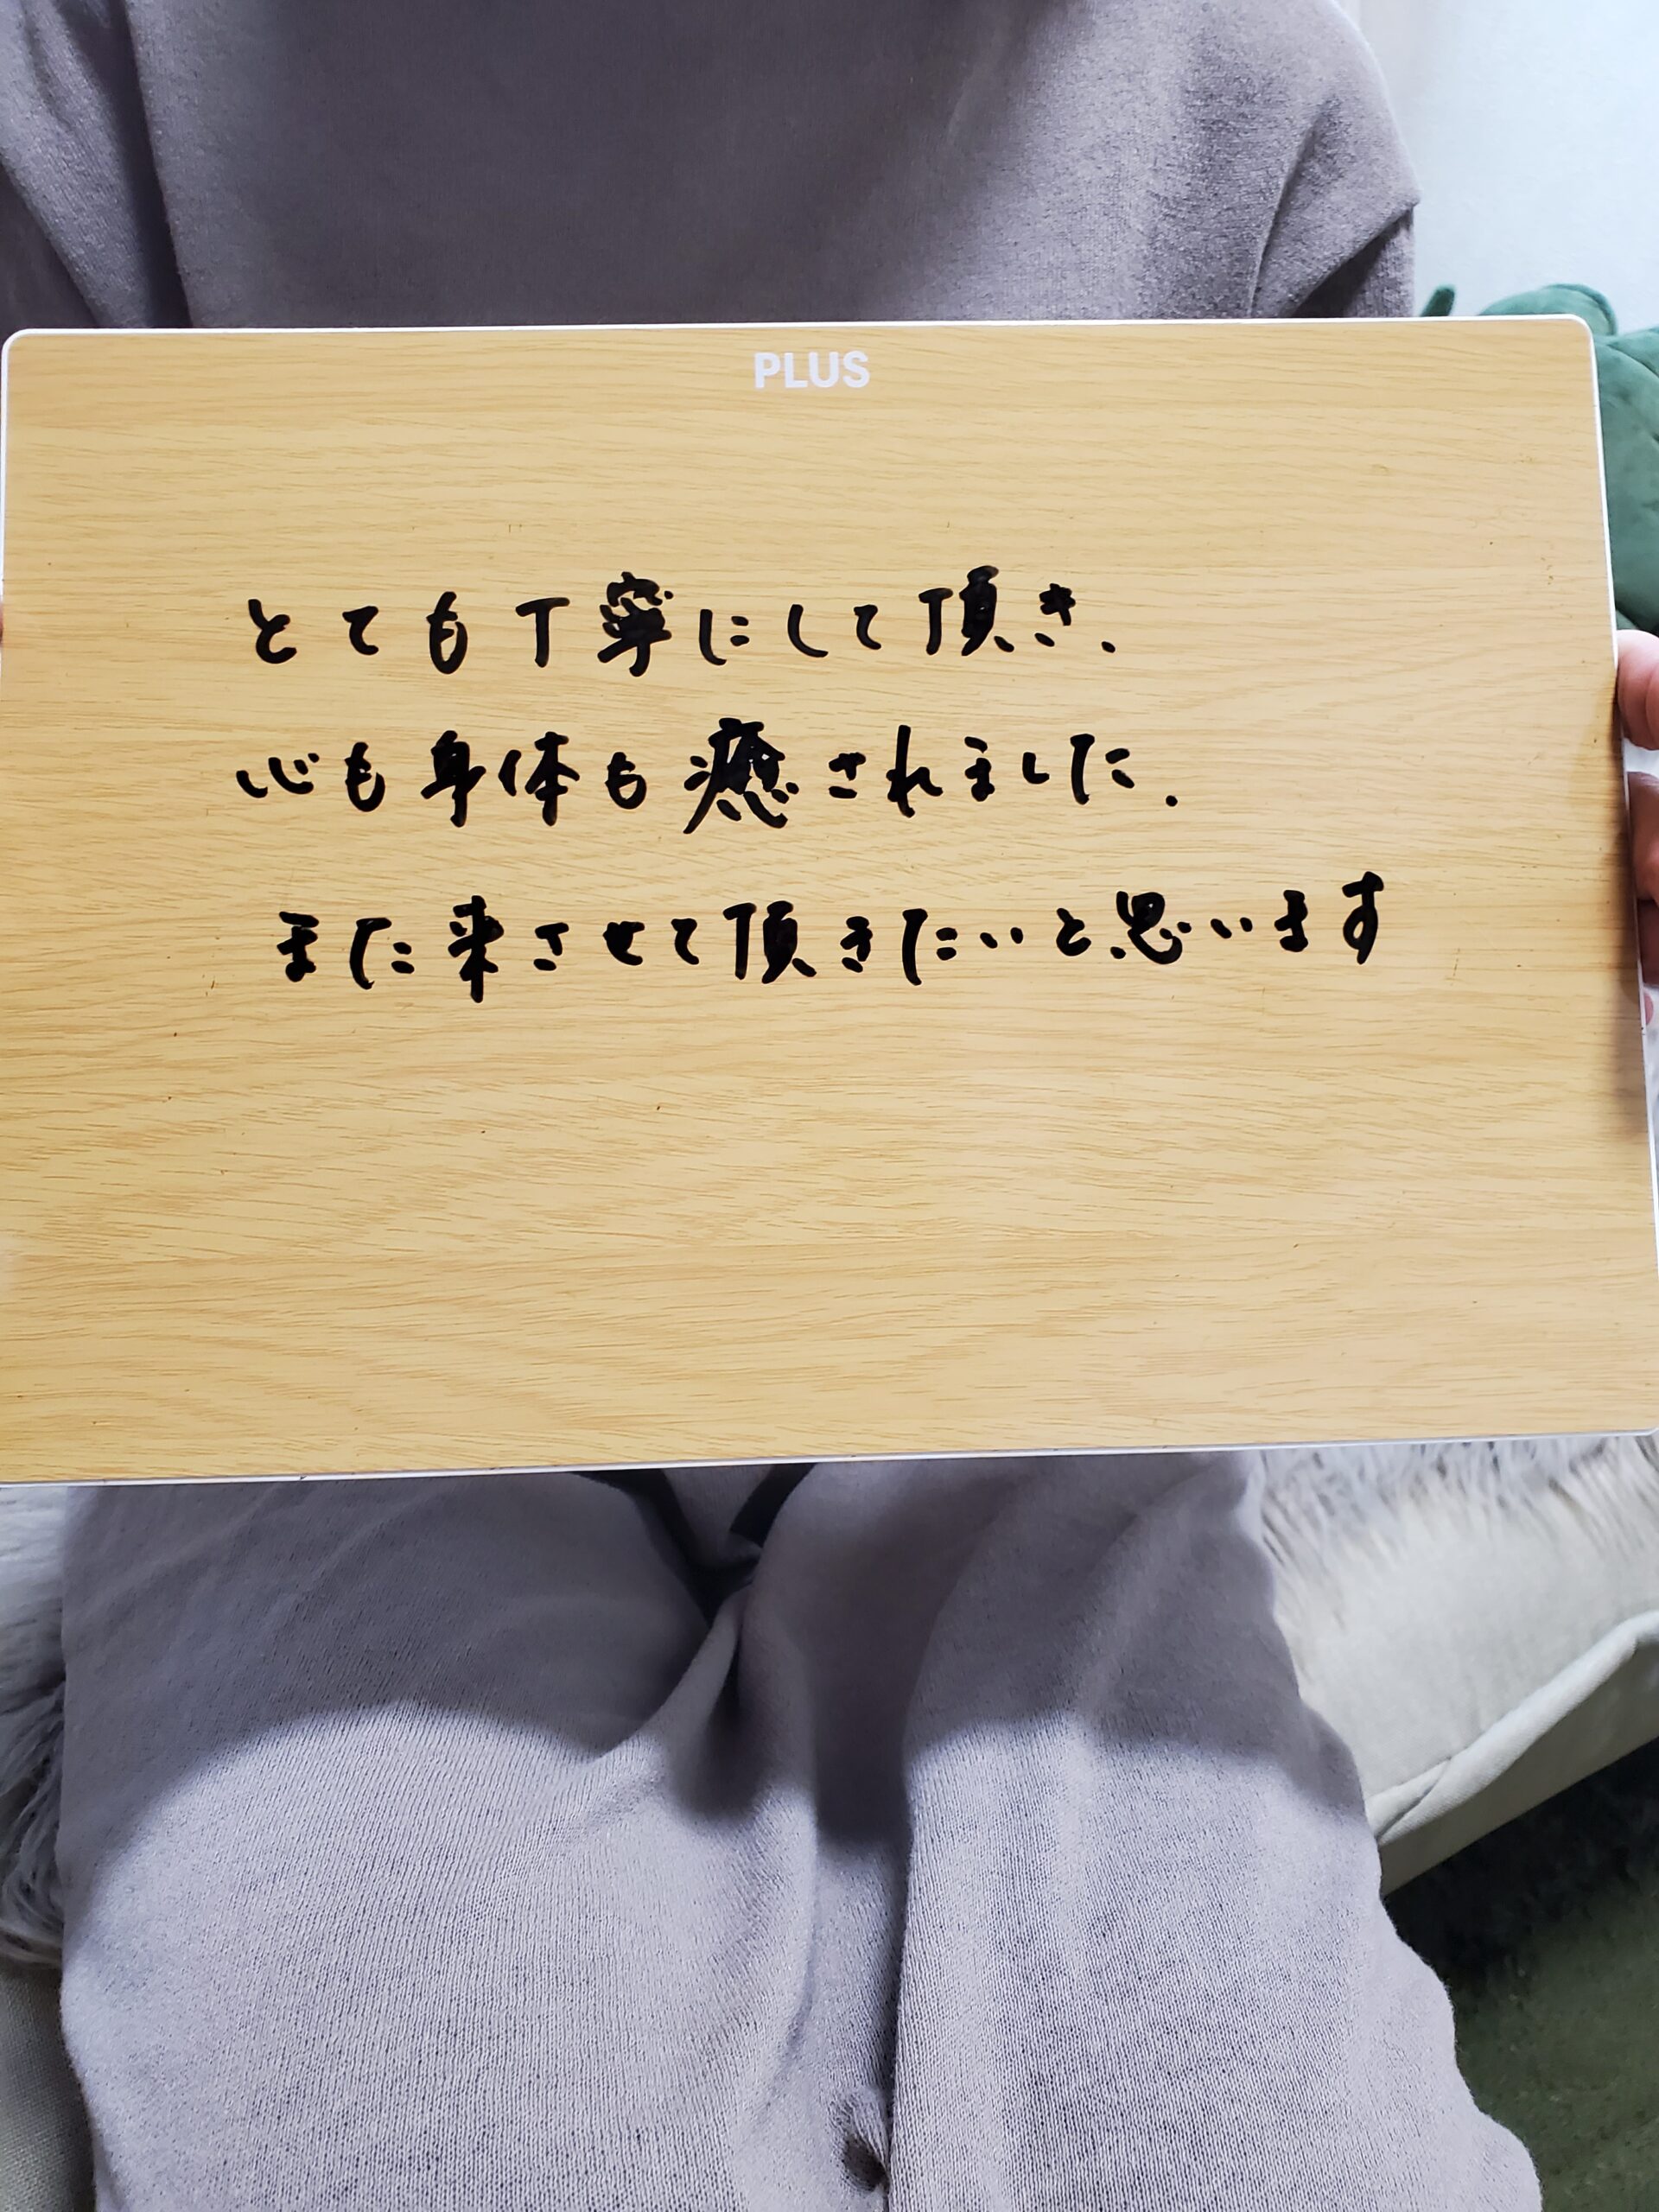 PLUS
とても丁寧にして頂き、
心も身体も癒されました.
また来させて頂きたいと思います